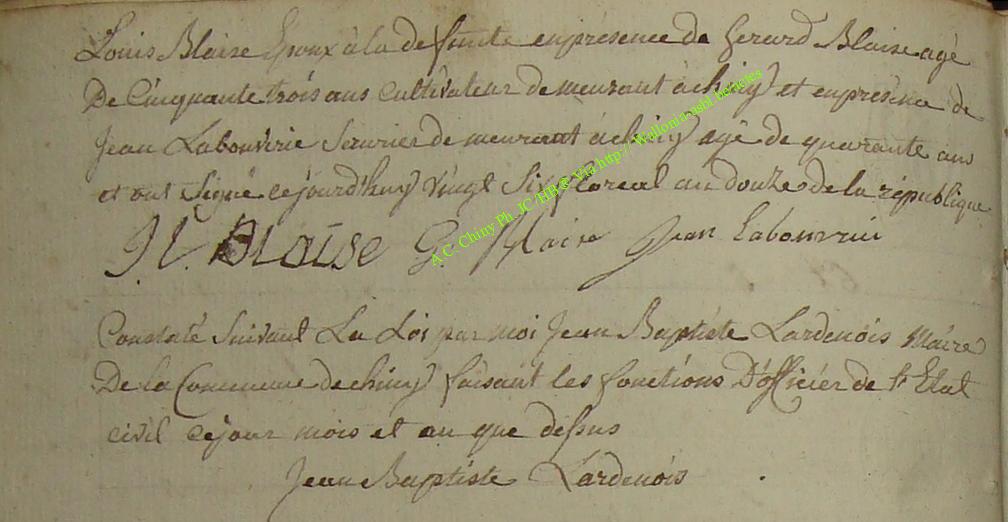 Louis Blaise Epoux à la defunte en présence de Gerard Blaise agé
De Cinquante trois ans cultivateur demeurant à chiny et en présence de
Jean Labouverie demeurant à chiny agé de quarante ans
et ont Signé cejourd'huy vingt Six floreal an douze de la république
Blaise G. Blaise Jean Labouvrie
Constaté Suivant La Loi par moi Jean Baptiste Lardenois Maire
De la Commune de chiny faisant les fonctions D'officier de l'Etat
civil ce jour mois et an que dessus
Jean Baptiste Lardenois
A.C. Chiny Ph. JC/HB@ Via http://Wallonia-asbl.be/actes